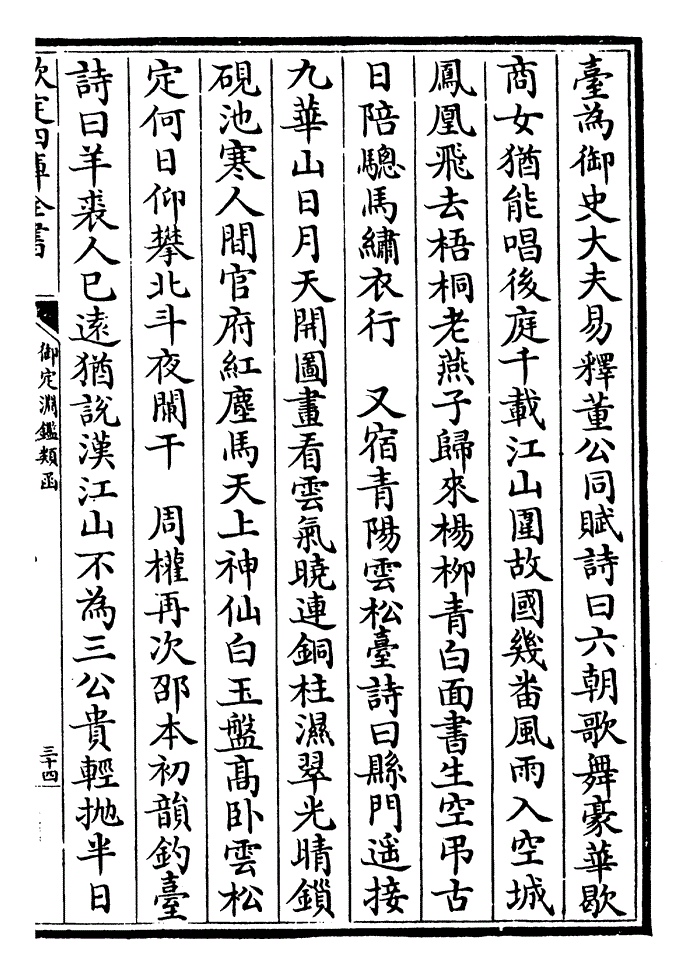 臺為御史大夫易釋董公同賦詩曰六朝歌舞豪華歇
商女猶能唱後庭千載江山圍故國幾番風雨入空城
鳳凰飛去梧桐老燕子歸來楊柳青白面書生空弔古
日陪驄馬繡衣行　又宿青陽雲松臺詩曰縣門遥接
九華山日月天開圖畫看雲氣曉連銅柱濕翠光晴鎖
硯池寒人間官府紅塵馬天上神仙白玉盤高卧雲松
定何日仰攀北斗夜闌干　周權再次邵本初韻釣臺
詩曰羊裘人已遠猶說漢江山不為三公貴輕拋半日
欽定四庫全書
御定淵鑑類函
三十四